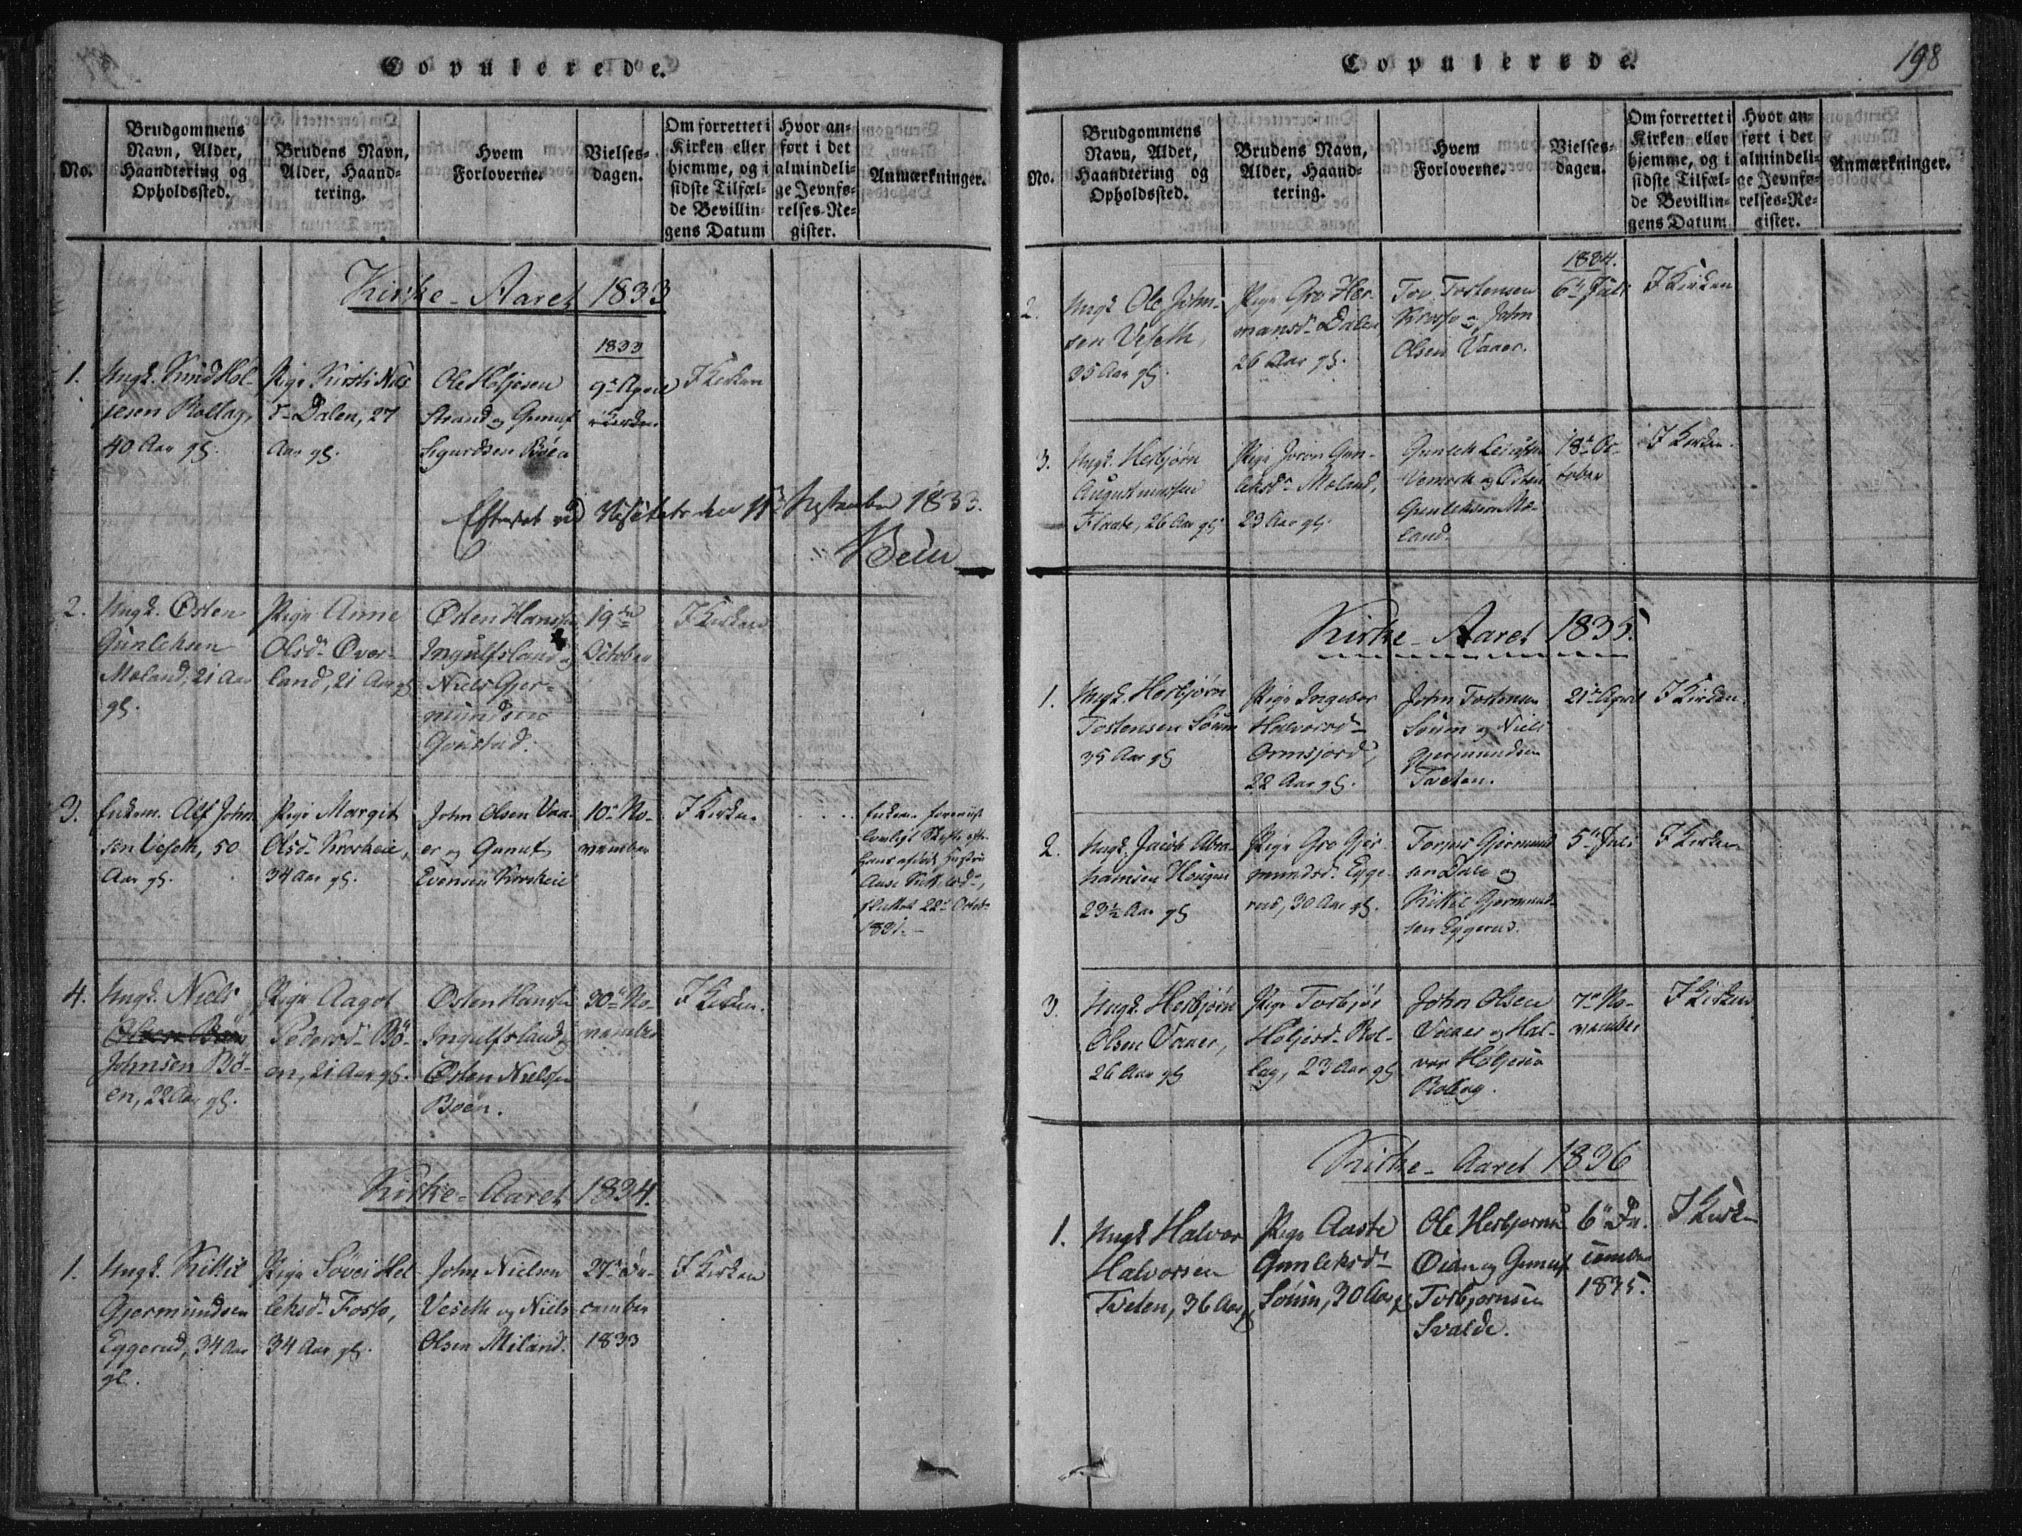 Copulerede.
No.
Brudgommens
Navn, Alder,
Haandtering og
Opholdssted.
Brudens Navn,
Alder, Haand-
tering.
Hvem
Forloverne.
Vielses-
dagen.
Om forrettet i
Kirken eller
hjemme, og i
sidste Tilfæl-
de Bevillin-
gens Datum
Hvor an-
ført i det
almindeli-
ge Jevnfø-
relses-Re-
gister.
Anmærkninger.
Kirke-Aaret 1833
1.
Ungk. Knud Høl-
jesen Rollag,
40 Aar gl.
Pige Kirsti
Dalen, 27
Aar gl.
Ole Høljesen
Strand og Gunuf
Sigurdsen Böen
1833
9de April
I Kirken
Efterseet ved Visitats den September 1833.
2.
Ungk. Østen
Gunleksen
Mæland, 21 Aar
gl.
Pige Anne
Olsdr Øver-
land, 21 Aar gl.
Østen Hansen
Ingulfsland og
Niels Gjer-
mundsen
Gaustad.
19de
October
I Kirken
3.
Enkem. Alf John-
sen Veseth, 50
Aar gl.
Pige Margit
Olsdr Krosheie,
34 Aar gl.
John Olsen Vaa-
er og Gunuf
Evensen Krosheie
10de No-
vember
I Kirken.
Enkem. foreviist
lovligt Skifte efter
hans afdøde Hustru
22de Octob.
1831.
4.
Ungk. Niels
Johnsen Bö-
en, 22 Aar gl.
Pige Aagot
Pedersdr Bö-
en, 21 Aar gl.
Østen Hansen
Ingulfsland og
Østen Nielsen
Böen.
30de No-
vember
I Kirken.
Kirke-Aaret 1834.
1.
Ungk. Kittil
Gjermundsen
Eggerud, 34 Aar
gl.
Pige Sövei Hel-
leksdr Fosso,
34 Aar gl.
John Nielsen
Veseth og Niels
Olsen Miland.
27de De-
cember
1833
I Kirken
Copulerede.
198
No.
Brudgommens
Navn, Alder,
Haandtering og
Opholdssted.
Brudens Navn,
Alder, Haand-
tering.
Hvem
Forloverne.
Vielses-
dagen.
Om forrettet i
Kirken eller
hjemme, og i
sidste Tilfæl-
de Bevillin-
gens Datum.
Hvor an-
ført i det
almindeli-
ge Jevnfø-
relses-Re-
gister.
Anmærkninger.
2.
Ungk. Ole John-
sen Veseth,
35 Aar gl.
Pige Gro Her-
mansdr Dalen,
26 Aar gl.
Tov Tostensen
Krosso og John
Olsen Vaaer.
1834.
6te Juli
I Kirken
3.
Ungk. Herbjørn
Augustinussen
Flaate, 26 Aar gl.
Pige Joron Gun-
leksdr Mæland,
23 Aar gl.
Gunlek
Vemork og Østen
Gunleksen Mæ-
land.
18de Oc-
tober
I Kirken.
Kirke-Aaret 1835.
1.
Ungk. Herbjørn
Tostensen Söum
35 Aar gl
Pige Ingebor
Halvorsdr
Ormsjord,
22 Aar gl.
John Tostensen
Söum og Niels
Gjermundsen
Tveten.
21de April
I Kirken.
2.
Ungk. Jacob Abra-
hamsen Haugen
23½ Aar gl
Pige Gro Gjer-
mundsdr Egge-
rud, 30 Aar gl.
Torger Gjermund-
sen Dale og
Kittil Gjermund-
sen Eggerud.
5te Juli
I Kirken
3.
Ungk. Herbjørn
Olsen Vaaer,
26 Aar gl
Pige Torbjör
Höljesdr Rol-
lag, 23 Aar gl
John Olsen
Vaaer og Hal-
vor Höljesen
Rollag.
7de No-
vember
I Kirken
Kirke-Aaret 1836
1.
Ungk Halvor
Halvorsen
Tveten, 36 Aar gl
Pige Aaste
Gunleksdr
Söum, 30 Aar gl
Ole Herbjørnsen
Øian og Gunuf
Torbjørnsen
Svalde.
6te De-
cember
1835.
I Kirken